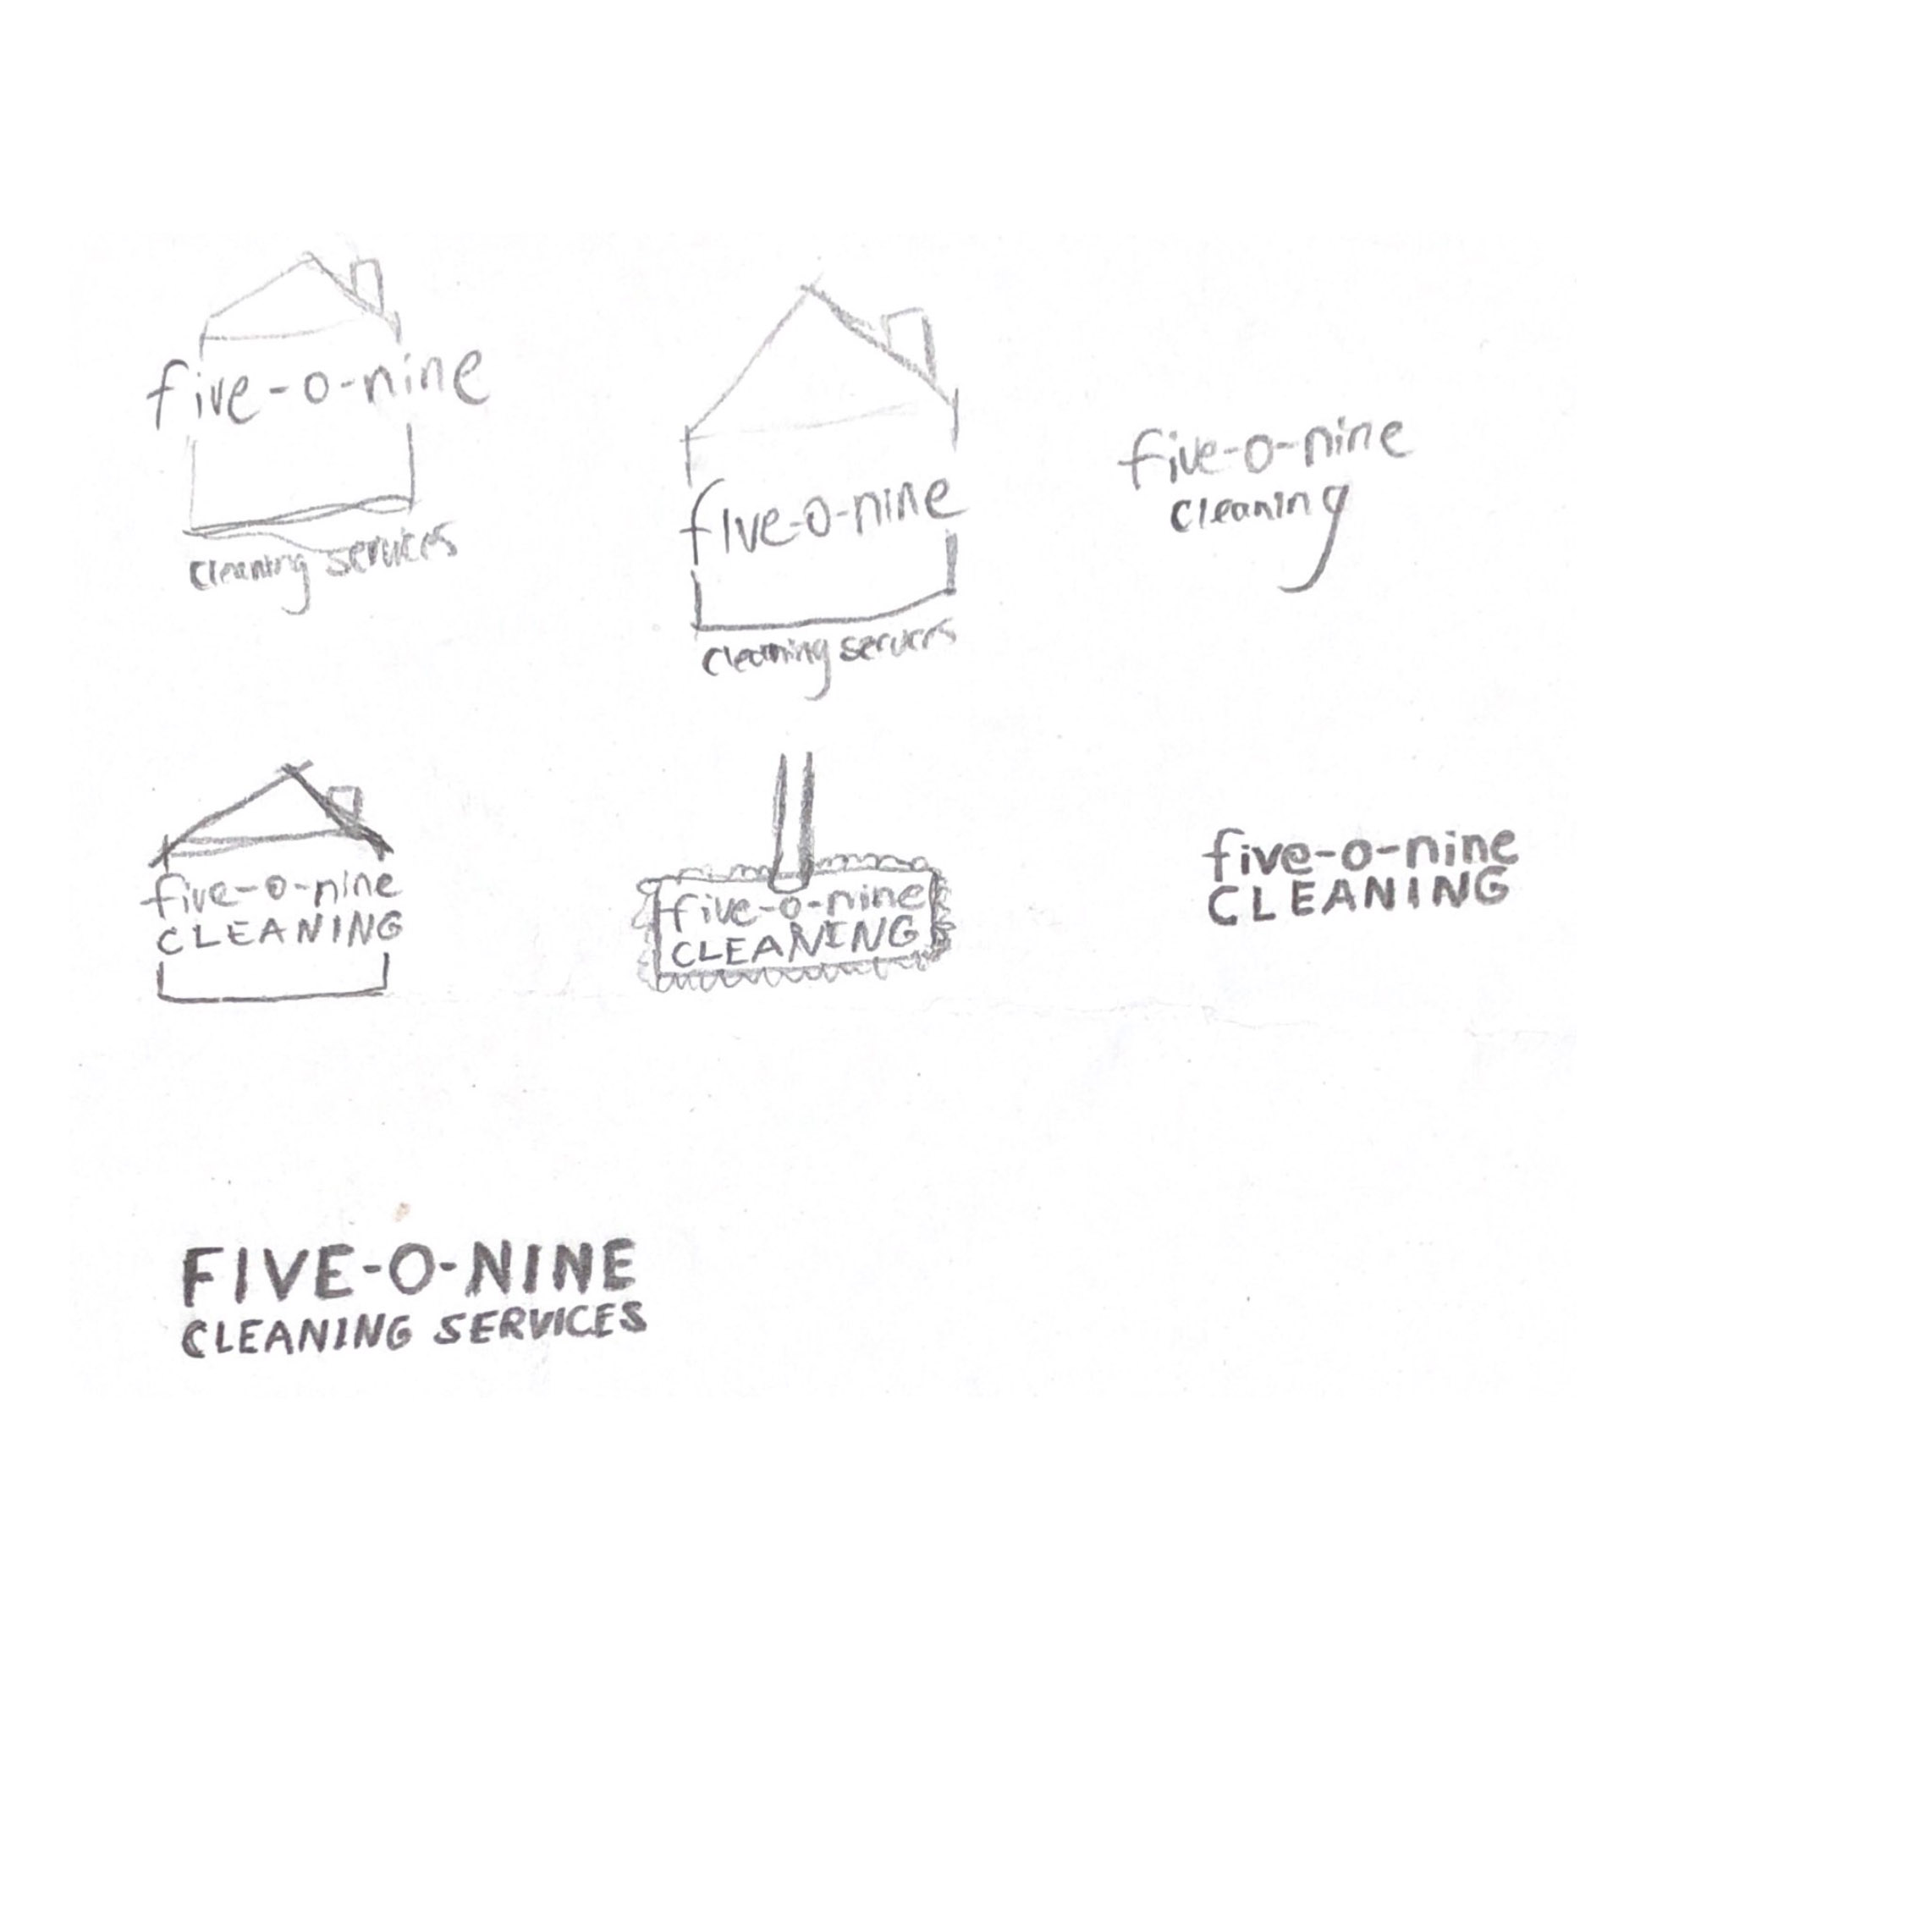 five-o-nine
cleaning services
five-o-nine
cleaning services
five-o-nine
cleaning
five-o-nine
CLEANING
five-o-nine
CLEANING
five-o-nine
CLEANING
FIVE-O-NINE
CLEANING SERVICES